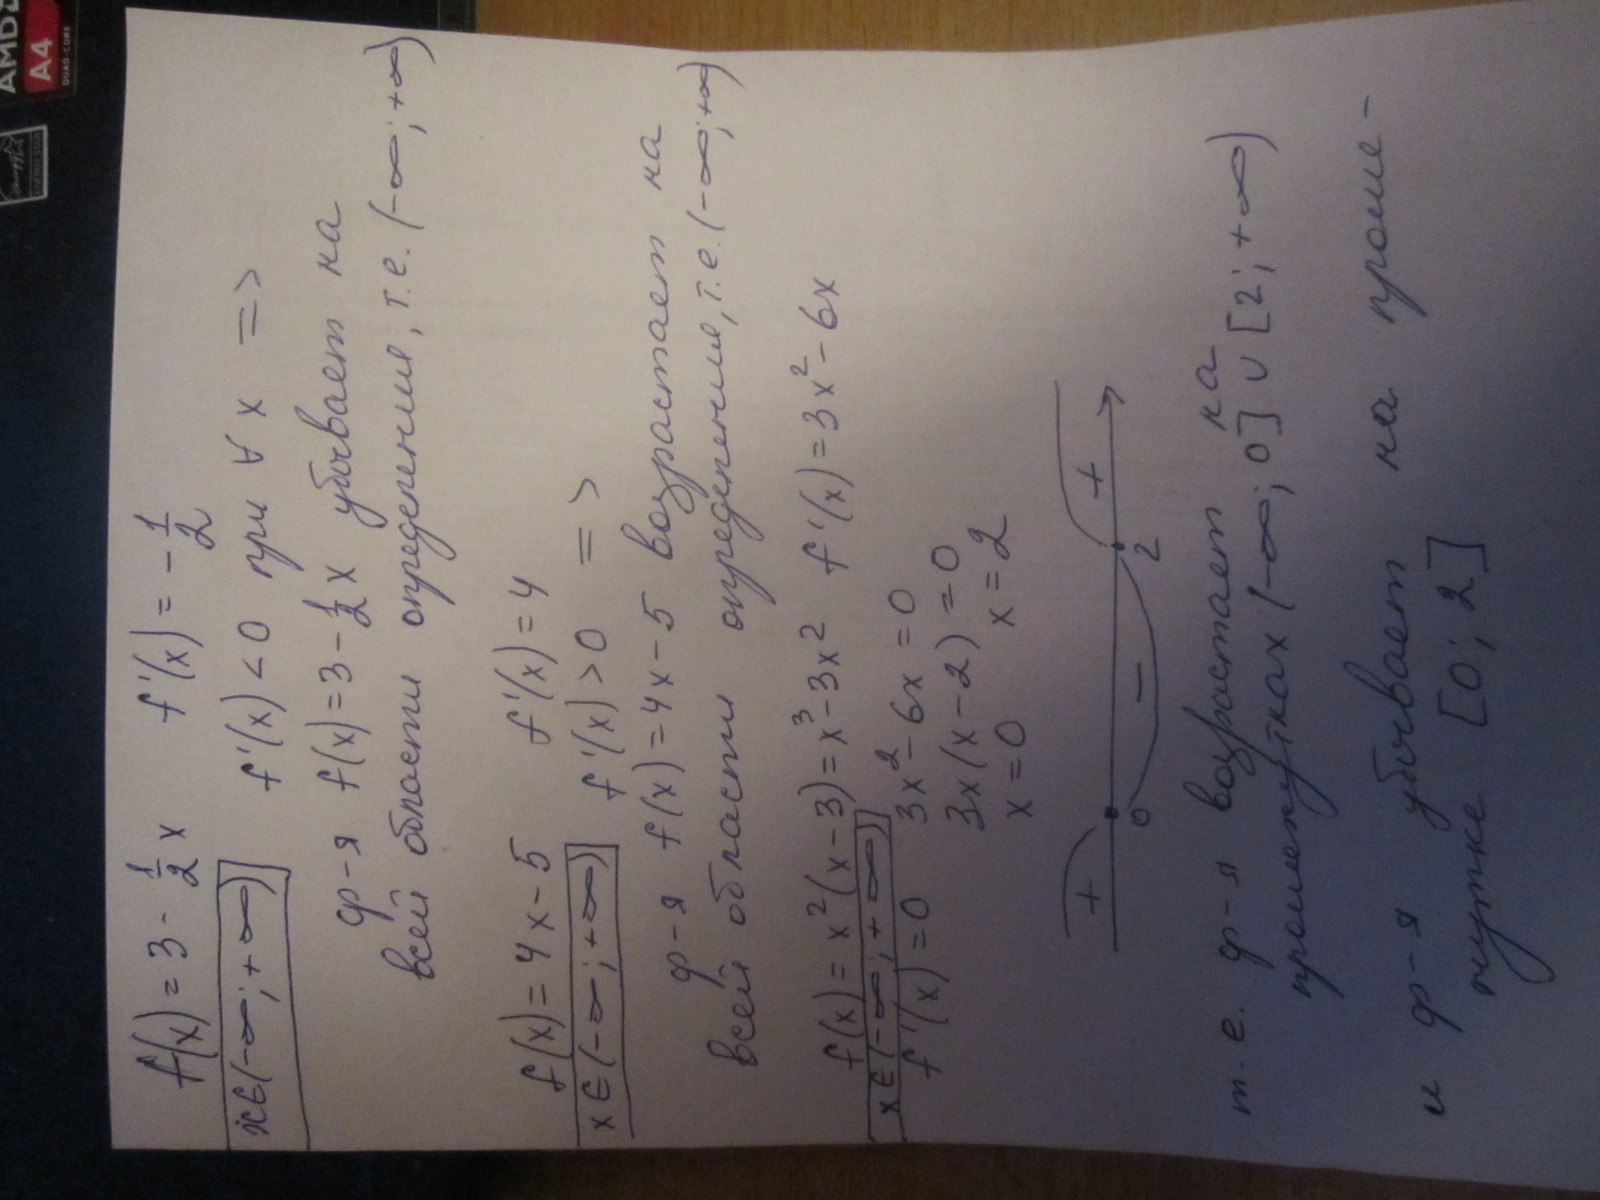 f(x) = 3 - 1/2 x   f'(x) = -1/2
x∈(-∞; +∞)   f'(x) < 0 при ∀ x =>
ф-я f(x) = 3 - 1/2 x убывает на
всей области определения, т.е. (-∞; +∞)
f(x) = 4x - 5   f'(x) = 4
x∈(-∞; +∞)   f'(x) > 0 =>
ф-я f(x) = 4x - 5 возрастает на
всей области определения, т.е. (-∞; +∞)
f(x) = x²(x - 3) = x³ - 3x²   f'(x) = 3x² - 6x
x∈(-∞; +∞)
f'(x) = 0   3x² - 6x = 0
3x(x - 2) = 0
x = 0   x = 2
+ - +
0 2
т.е. ф-я возрастает на
промежутках (-∞; 0] ∪ [2; +∞)
и ф-я убывает на проме-
жутке [0; 2]
AMD
A4
QUAD-CORE